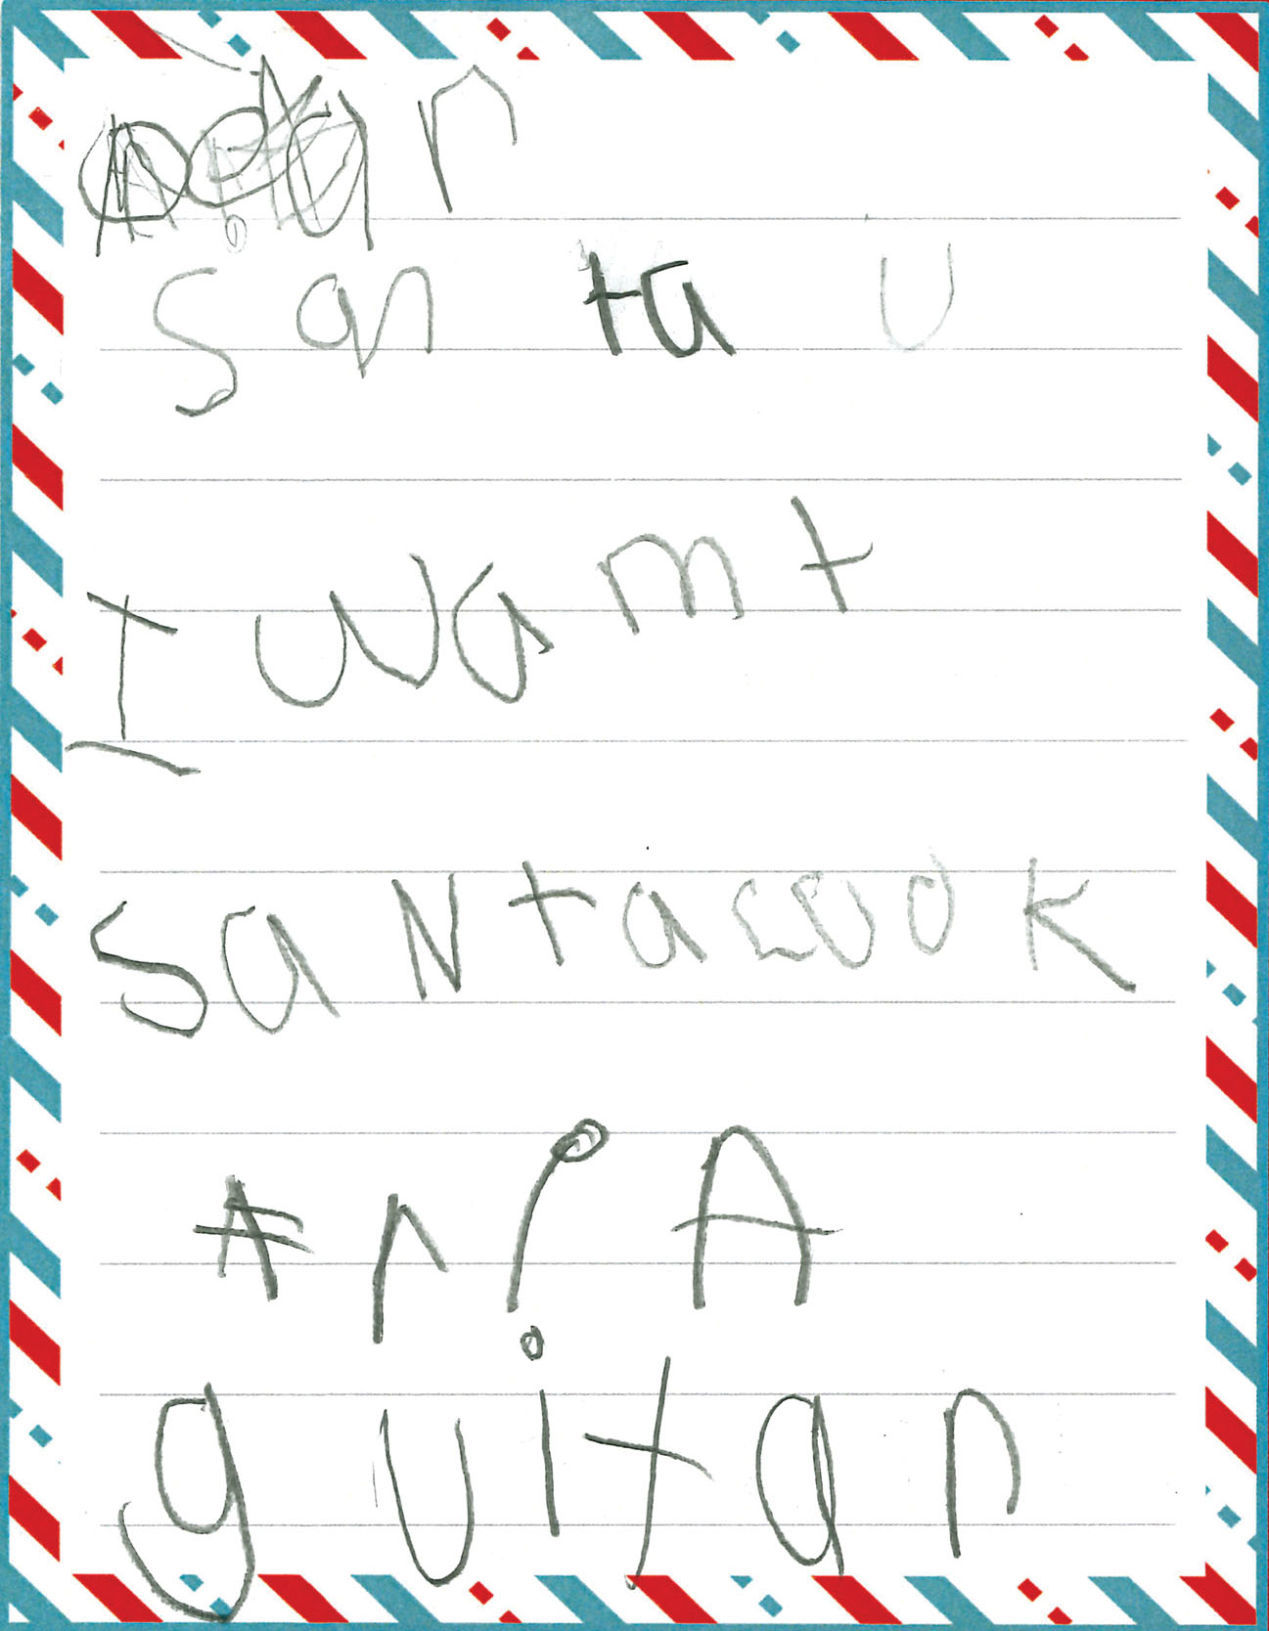 Dear
Santa U
I wamt
SaNtacook
Ar A
guitar